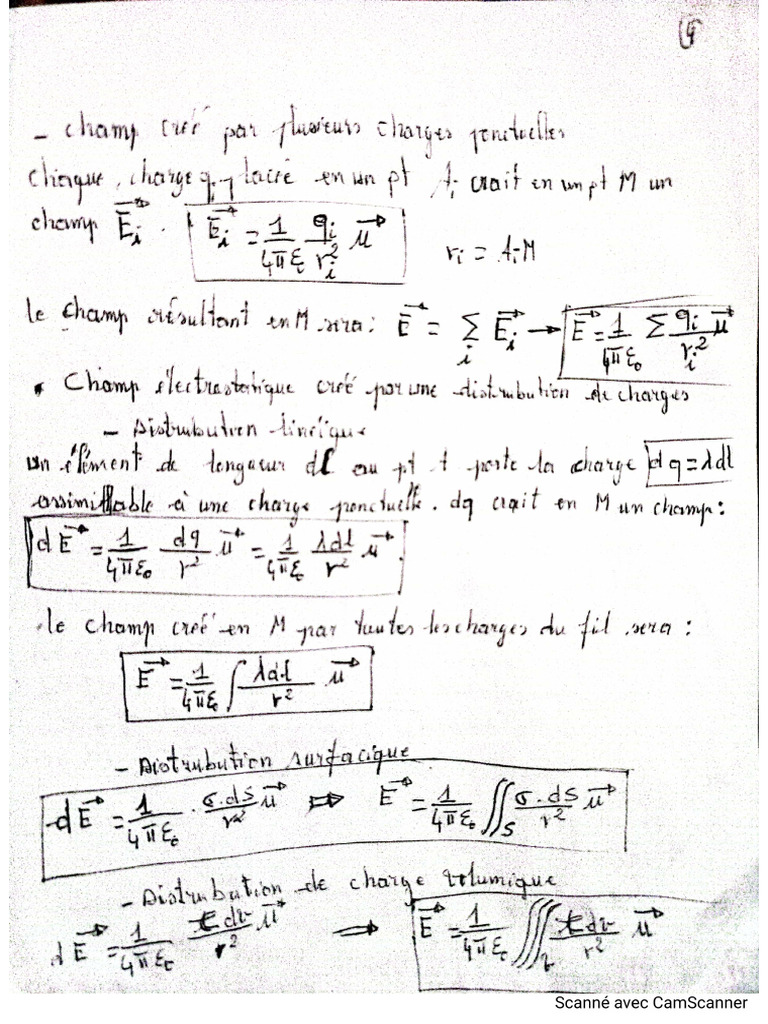 4
- champ créé par plusieurs charges ponctuelles
chaque charge qᵢ placée en un pt Aᵢ crait en un pt M un
champ E⃗ᵢ. E⃗ᵢ = 1/4πε₀ qᵢ/rᵢ² u⃗ rᵢ = AᵢM
le champ résultant en M sera: E⃗ = Σᵢ E⃗ᵢ → E⃗ = 1/4πε₀ Σ qᵢ/rᵢ² u⃗
• Champ électrostatique créé par une distribution de charges
- Distrubution linéique
un élément de longueur dl au pt t porte la charge dq = λdl
assimillable à une charge ponctuelle. dq crait en M un champ:
dE⃗ = 1/4πε₀ dq/r² u⃗ = 1/4πε₀ λdl/r² u⃗
le champ créé en M par toutes les charges du fil sera:
E⃗ = 1/4πε₀ ∫ λdl/r² u⃗
- Distrubution surfacique
dE⃗ = 1/4πε₀ . σ.ds/r² u⃗ ⇒ E⃗ = 1/4πε₀ ∬s σ.ds/r² u⃗
- Distrubution de charge volumique
dE⃗ = 1/4πε₀ τdv/r² u⃗ ⇒ E⃗ = 1/4πε₀ ∭v τdv/r² u⃗
Scanné avec CamScanner